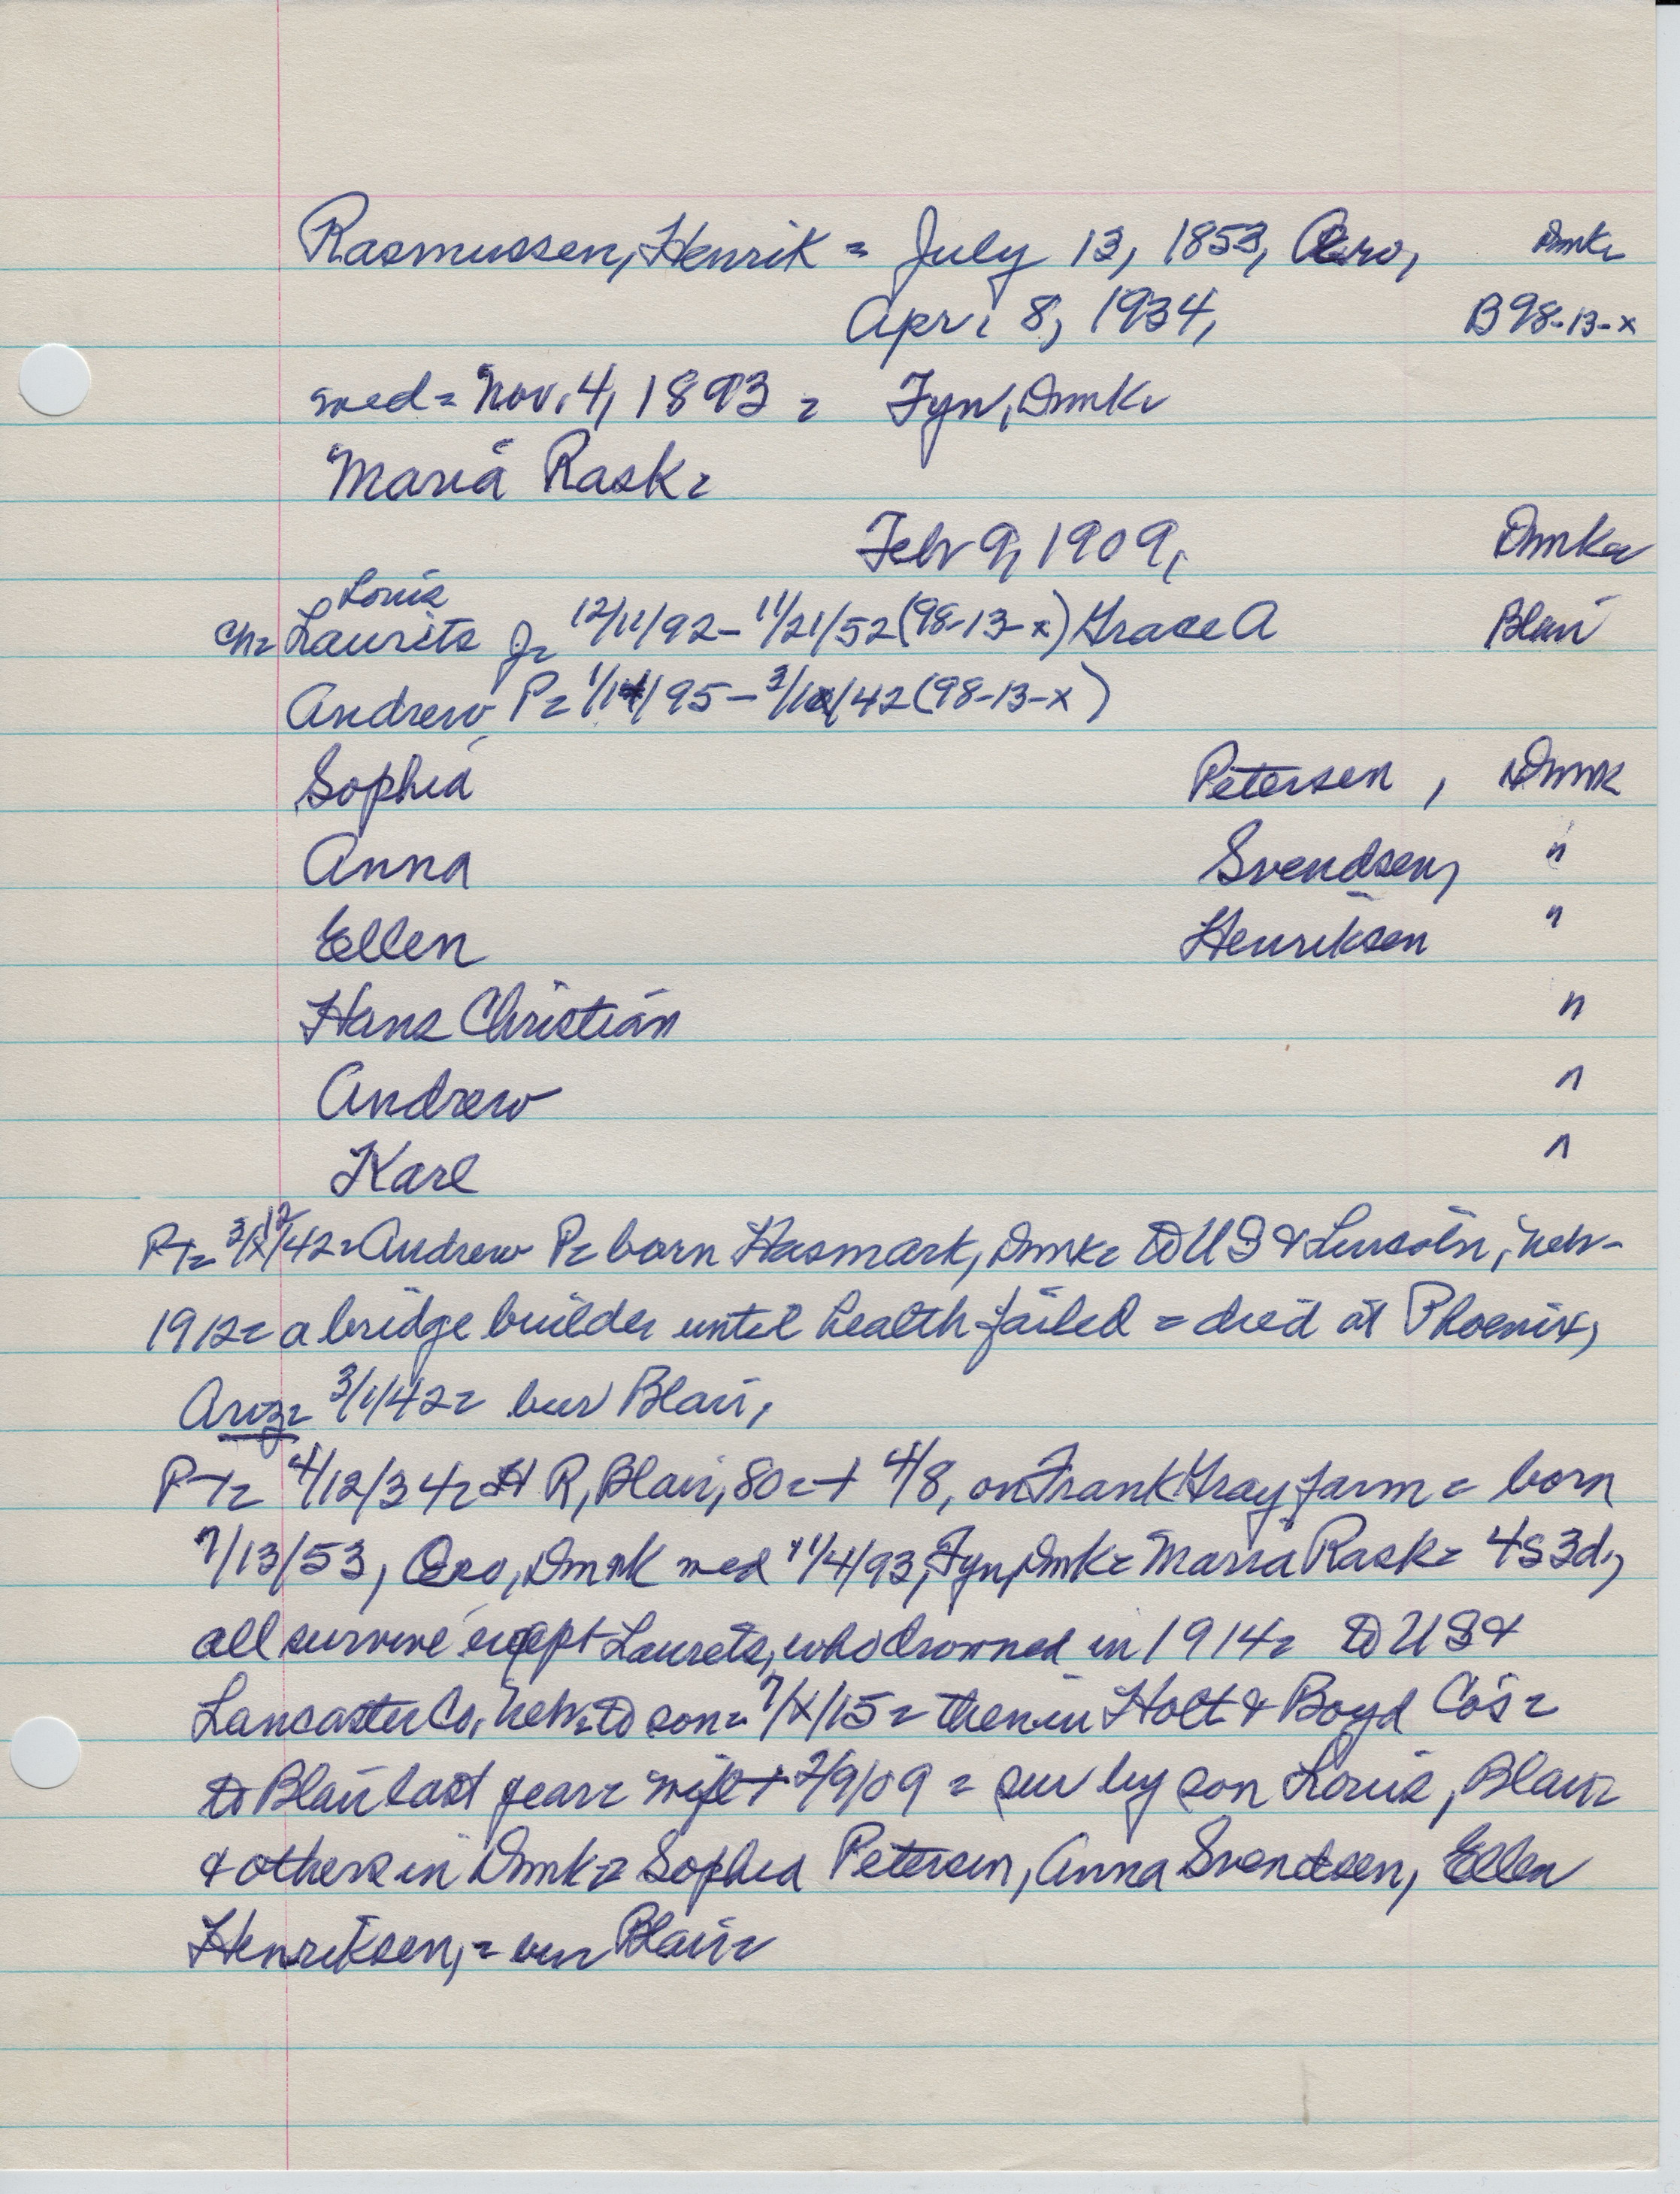 Rasmussen, Henrik = July 13, 1853, Aero, Dmk=
Apri 8, 1934, B 98-13-x
med = Nov. 4, 1893 = Fyn, Dmk=
Maria Rask=
Febr 9, 1909, Dmk=
Louis
ch= Laurits J= 12/11/92 - 11/21/52 (98-13-x) Grace A Blair
Andrew P= 1/1/95 - 3/1/42 (98-13-x)
Sophia Petersen, Dmk
Anna Svendsen, "
Ellen Henriksen "
Hans Christian "
Andrew "
Karl "
PT= 3/12/42= Andrew P= born Hasmark, Dmk= to US & Lincoln, Neb-
1912= a bridge builder until health failed = died at Phoenix,
Ariz= 3/1/42= bur Blair,
PT= 4/12/34= H R, Blair, 80=+ 4/8, on Frank Gray farm = born
7/13/53, Aero, Dmk med 11/4/93, Fyn, Dmk= Maria Rask= 4s 3d,
all survive except Laurets, who drowned in 1914= to US &
Lancaster Co, Neb= to son= 7/x/15= then in Holt & Boyd Co's=
to Blair last year= wife + 2/9/09 = sur by son Louis, Blair=
& others in Dmk= Sophia Petersen, Anna Svendsen, Ellen
Henriksen, = bur Blair=